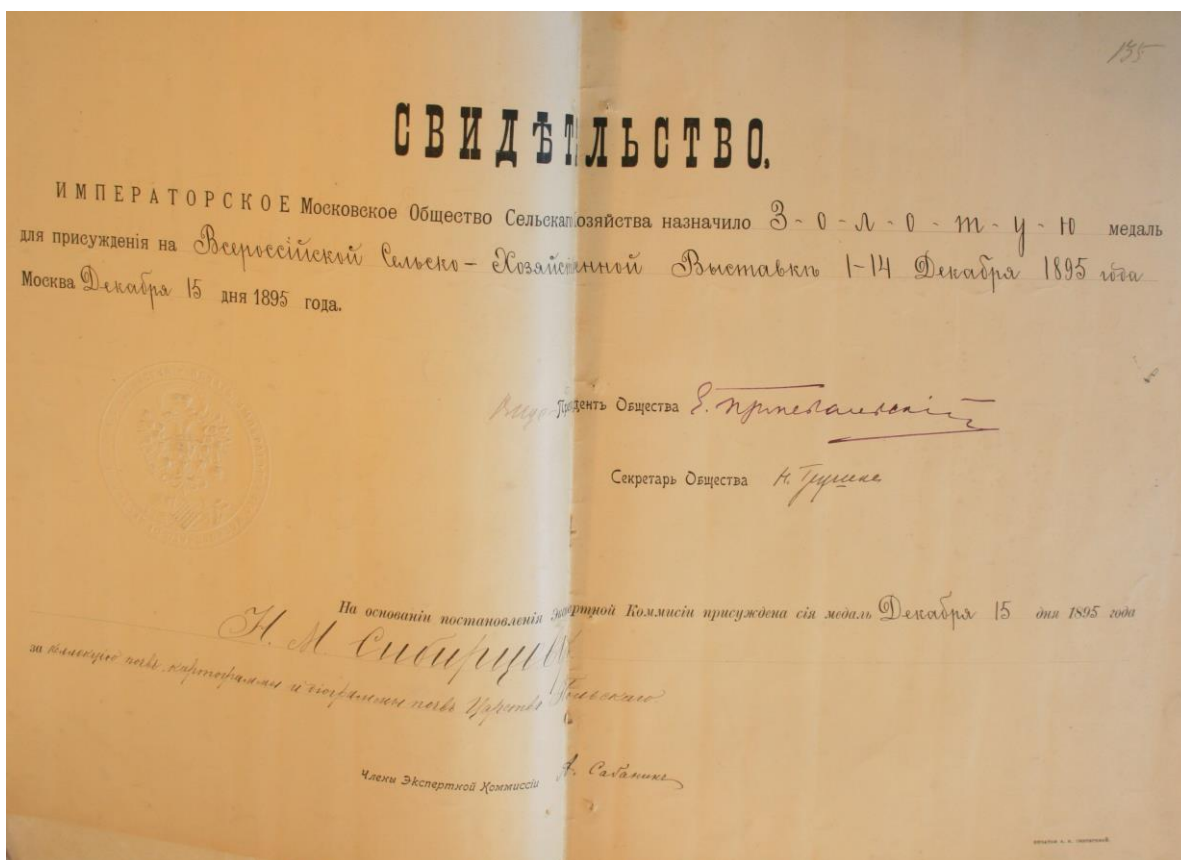 135
СВИДѢТЕЛЬСТВО.
ИМПЕРАТОРСКОЕ Московское Общество Сельскаго Хозяйства назначило З-о-л-о-т-у-ю медаль
для присужденія на Всероссійской Сельско-Хозяйственной Выставкѣ 1-14 Декабря 1895 года
Москва Декабря 15 дня 1895 года.
Президентъ Общества
Секретарь Общества
На основаніи постановленія Экспертной Коммисіи присуждена сія медаль Декабря 15 дня 1895 года
Н. М. Сибирцеву
за коллекцію почвъ картограммы и діаграммы почвъ Царства Польскаго
Члены Экспертной Коммиссіи А. Сабанинъ